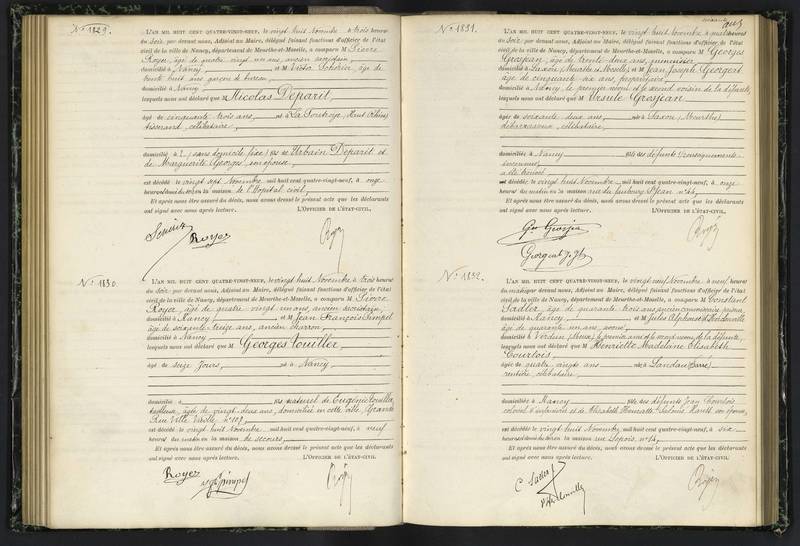 N° 1829.
L'AN MIL HUIT CENT QUATRE-VINGT-NEUF, le vingt huit Novembre à trois heures
du Soir, par devant nous, Adjoint au Maire, délégué faisant fonctions d'officier de l'état
civil de la ville de Nancy, département de Meurthe-et-Moselle, a comparu M Pierre
Royer, âgé de quatre vingt un ans, ancien
domicilié à Nancy et M Victor âgé de
trente huit ans garçon de bureau
domicilié à Nancy
lesquels nous ont déclaré que M Nicolas Déparit,
âgé de cinquante trois ans, né à La Poutroye (Haut Rhin)
tisserand, célibataire,
domicilié à (sans domicile fixe) fils de Urbain Déparit et
de Marguerite Georges, son épouse
est décédé le vingt sept Novembre mil huit cent quatre-vingt-neuf, à onze
heures du en la maison de l'Hôpital civil,
Et après nous être assuré du décès, nous avons dressé le présent acte que les déclarants
ont signé avec nous après lecture. L'OFFICIER DE L'ÉTAT-CIVIL,
Royer
N° 1830.
L'AN MIL HUIT CENT QUATRE-VINGT-NEUF, le vingt huit Novembre à trois heures
du Soir, par devant nous, Adjoint au Maire, délégué faisant fonctions d'officier de l'état
civil de la ville de Nancy, département de Meurthe-et-Moselle, a comparu M Pierre
Royer, âgé de quatre vingt un ans, ancien secrétaire,
domicilié à Nancy et M Jean François
âgé de soixante treize ans, ancien charron,
domicilié à Nancy
lesquels nous ont déclaré que M Georges Touiller,
âgé de seize jours, né à Nancy,
domicilié à fils naturel de Eugénie Touiller,
tailleuse, âgée de vingt deux ans, domiciliée en cette ville, Grande
Rue Ville Vieille n° 107,
est décédé le vingt huit Novembre mil huit cent quatre-vingt-neuf, à neuf
heures du matin en la maison de secours,
Et après nous être assuré du décès, nous avons dressé le présent acte que les déclarants
ont signé avec nous après lecture. L'OFFICIER DE L'ÉTAT-CIVIL
Royer
N° 1831.
L'AN MIL HUIT CENT QUATRE-VINGT-NEUF, le vingt huit Novembre à quatre heures
du Soir, par devant nous, Adjoint au Maire, délégué faisant fonctions d'officier de l'état
civil de la ville de Nancy, département de Meurthe-et-Moselle, a comparu M Georges
Grosjean, âgé de trente deux ans,
domicilié à Saxon (Meurthe et Moselle) et M Jean Joseph Georgent
âgé de cinquante six ans, propriétaire,
domicilié à Nancy, le premier neveu et le second voisin de la défunte,
lesquels nous ont déclaré que M Ursule Grosjean
âgée de soixante deux ans née à Saxon (Meurthe)
célibataire,
domiciliée à Nancy fille des défunts (renseignements
inconnus)
a été trouvé
est décédée le vingt huit Novembre mil huit cent quatre-vingt-neuf, à onze
heures du matin en la maison rue du faubourg St Jean n° 44,
Et après nous être assuré du décès, nous avons dressé le présent acte que les déclarants
ont signé avec nous après lecture. L'OFFICIER DE L'ÉTAT-CIVIL,
Georgent J.
N° 1832.
L'AN MIL HUIT CENT QUATRE-VINGT-NEUF, le vingt neuf Novembre à neuf heures
du matin par devant nous, Adjoint au Maire, délégué faisant fonctions d'officier de l'état
civil de la ville de Nancy, département de Meurthe-et-Moselle, a comparu M Constant
Sadler, âgé de quarante trois ans
domicilié à Nancy et M Jules Alphonse
âgé de quarante un ans, avoué
domicilié à Verdun (Meuse) le premier ami et le second neveu de la défunte,
lesquels nous ont déclaré que M Henriette Madeleine Elisabeth
Courtois,
âgée de quatre vingts ans née à Landau
rentière célibataire,
domiciliée à Nancy fille des défunts Jean Courtois
colonel d'infanterie et de Elisabeth Henriette son épouse,
est décédée le vingt huit Novembre mil huit cent quatre-vingt-neuf, à six
heures du en la maison rue Lepois n° 14,
Et après nous être assuré du décès, nous avons dressé le présent acte que les déclarants
ont signé avec nous après lecture. L'OFFICIER DE L'ÉTAT-CIVIL,
C Sadler